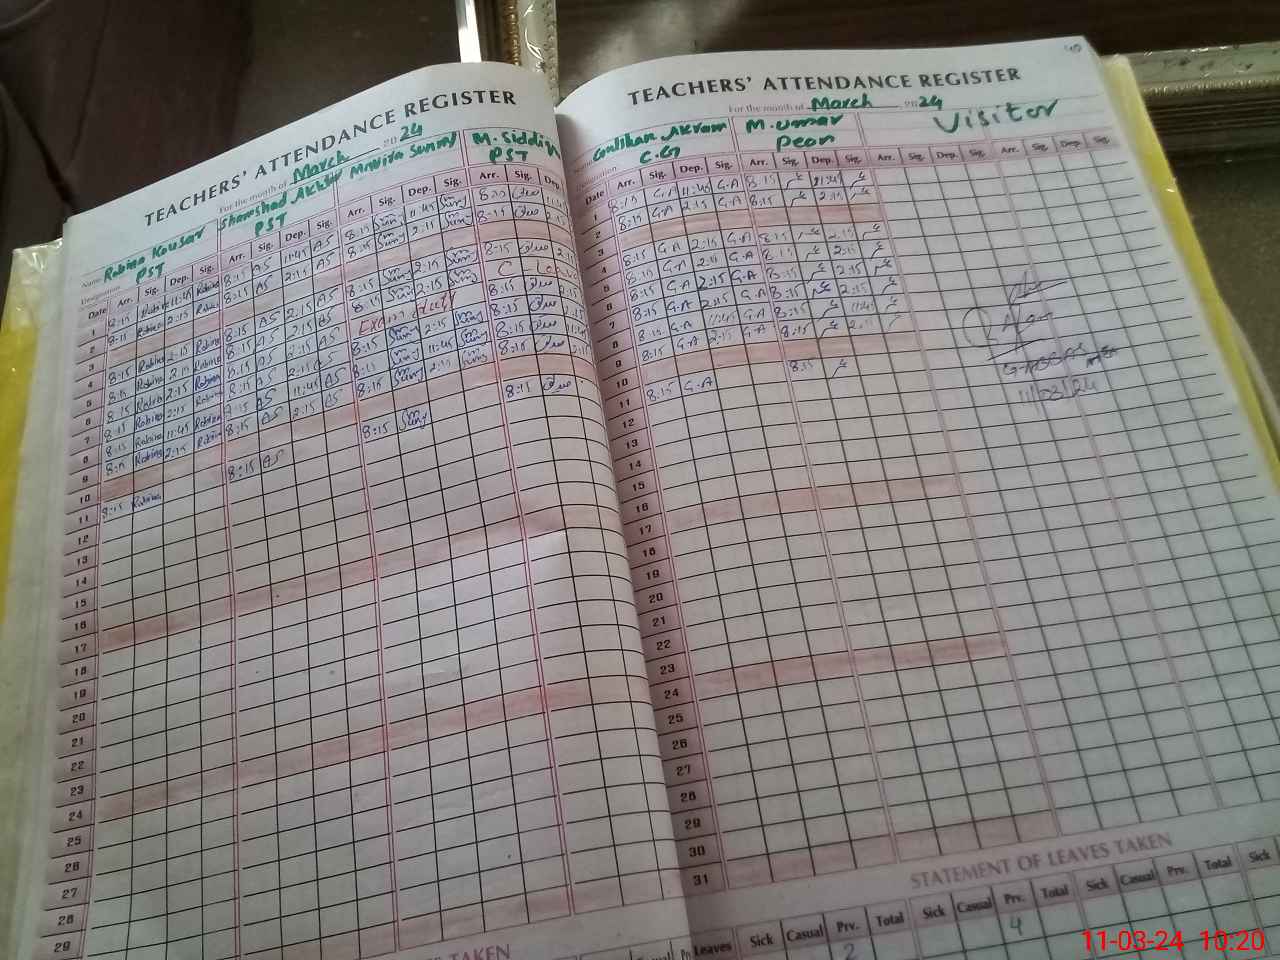 TEACHERS' ATTENDANCE REGISTER
For the month of March 20 24
Name Robina Kousar Shamshad Akhtar M. Siddi
Designation PST PST PST
Date Arr. Sig. Dep. Sig. Arr. Sig. Dep. Sig. Arr. Sig. Dep. Sig. Arr. Sig. Dep.
1 8:15 Robina 11:45 Robina 8:15 AS 11:45 AS 8:15 Sunny 11:45 Sunny
2 8:15 Robina 2:15 Robina 8:15 AS 2:15 AS 8:15 Sunny 2:15 Sunny 8:15
3
4 8:15 Robina 2:15 Robina 8:15 AS 2:15 AS 8:15 Sunny 2:15 Sunny 8:15 2:15
5 8:15 Robina 2:15 Robina 8:15 AS 2:15 AS 8:15 Sunny 2:15 Sunny
6 8:15 Robina 2:15 Robina 8:15 AS 2:15 AS Exam duty 8:15 2:15
7 8:15 Robina 2:15 Robina 8:15 AS 2:15 AS 8:15 Sunny 2:15 Sunny 8:15
8 8:15 Robina 11:45 Robina 8:15 AS 11:45 AS 8:15 Sunny 11:45 Sunny 8:15 11:45
9 8:15 Robina 2:15 Robina 8:15 AS 2:15 AS 8:15 Sunny 2:15 Sunny 8:15 2:15
10
11 8:15 Robina 8:15 AS 8:15 Sunny 8:15
12
13
14
15
16
17
18
19
20
21
22
23
24
25
26
27
28
29
TAKEN
TEACHERS' ATTENDANCE REGISTER
For the month of March 20 24
Akram M. Umar Visitor
Peon
Date Arr. Sig. Dep. Sig. Arr. Sig. Dep. Sig. Arr. Sig. Dep. Sig. Arr. Sig. Dep. Sig.
1 8:15 G.A 11:45 G.A 8:15 11:45
2 8:15 G.A 2:15 G.A 8:15 2:15
3
4 8:15 G.A 2:15 G.A 8:15 2:15
5 8:15 G.A 2:15 G.A 8:15 2:15
6 8:15 G.A 2:15 G.A 8:15 2:15
7 8:15 G.A 2:15 G.A 8:15 2:15
8 8:15 G.A 11:45 G.A 8:15 11:45
9 8:15 G.A 2:15 G.A 8:15 2:15
10
11 8:15 G.A 8:15
12
13
14
15
16
17
18
19
20
21
22
23
24
25
26
27
28
29
30
31
11/03/24
STATEMENT OF LEAVES TAKEN
Leaves Sick Casual Prv. Total Sick Casual Prv. Total Sick Casual Prv. Total Sick
2 4
11-03-24 10:20